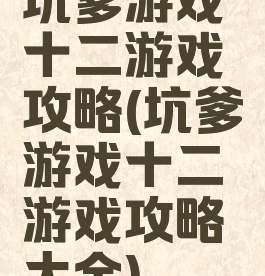 坑爹游戏
十二游戏
攻略(坑爹
游戏十二
游戏攻略
大全)